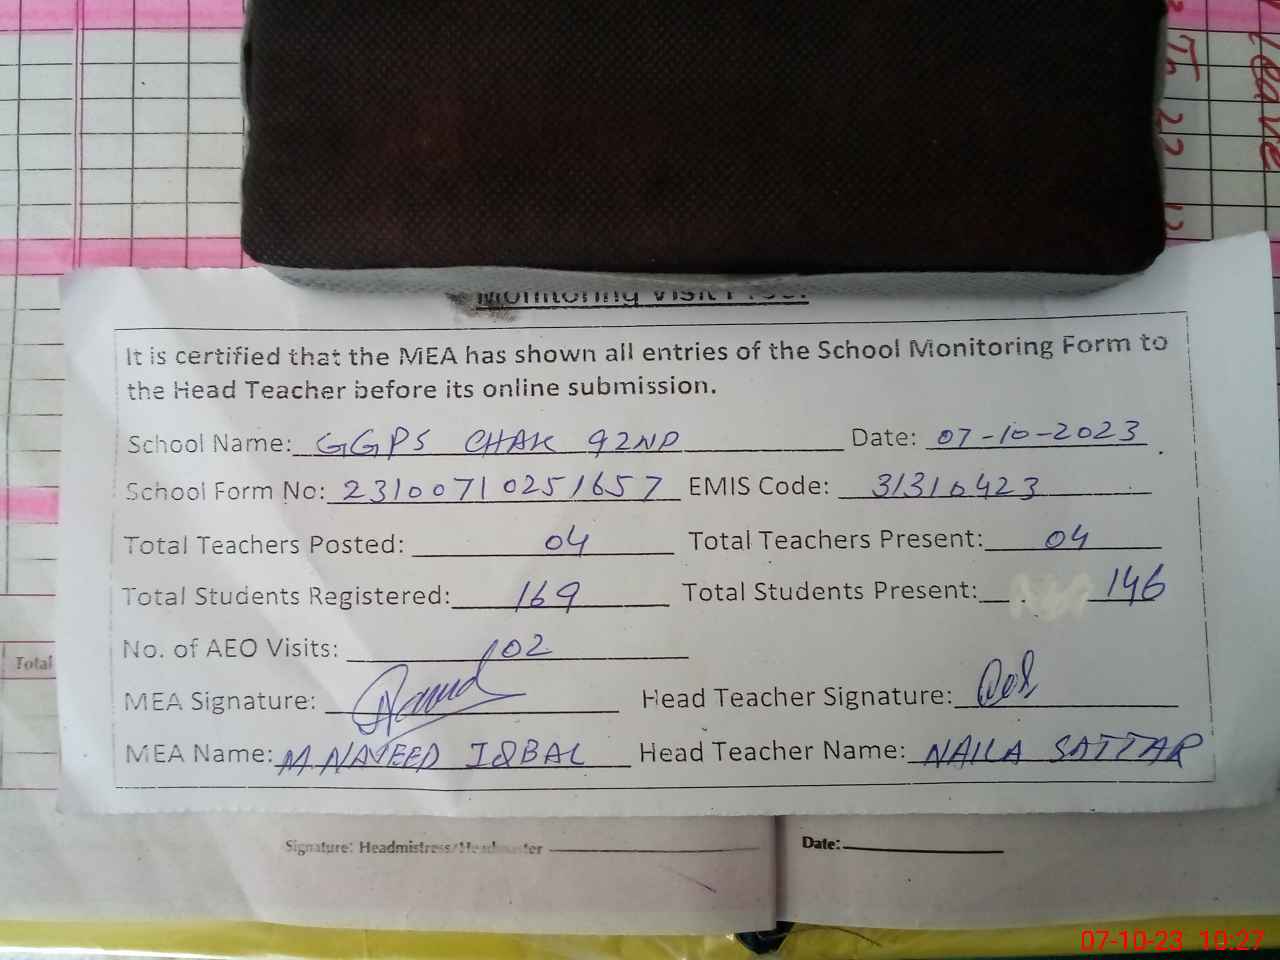 Leave
Tn 22 12
Monitoring Visit Proof
It is certified that the MEA has shown all entries of the School Monitoring Form to
the Head Teacher before its online submission.
School Name: GGPS CHAK 92NP Date: 07-10-2023
School Form No: 23100710251657 EMIS Code: 31310423
Total Teachers Posted: 04 Total Teachers Present: 04
Total Students Registered: 169 Total Students Present: 146
No. of AEO Visits: 02
MEA Signature: Head Teacher Signature:
MEA Name: M NAVEED IQBAL Head Teacher Name: NAILA SATTAR
Total
Signature: Headmistress/Headmaster Date:
07-10-23 10:27